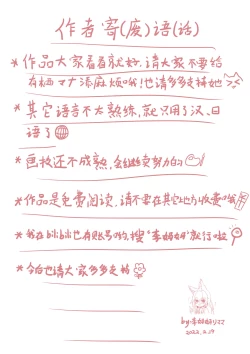 作者寄(废)语(话)
*作品大家看看就好,请大家不要给
有栖ママ添麻烦哦!也请多多支持她
*其它语言不太熟练,就只用了汉、日
语了
*画技还不成熟,会继续努力的
*作品是免费阅读,请不要在其它地方收费哦
*我在bilibili也有账号哟,搜"李妲妲"就行啦
*今后也请大家多多支持
2023.2.19